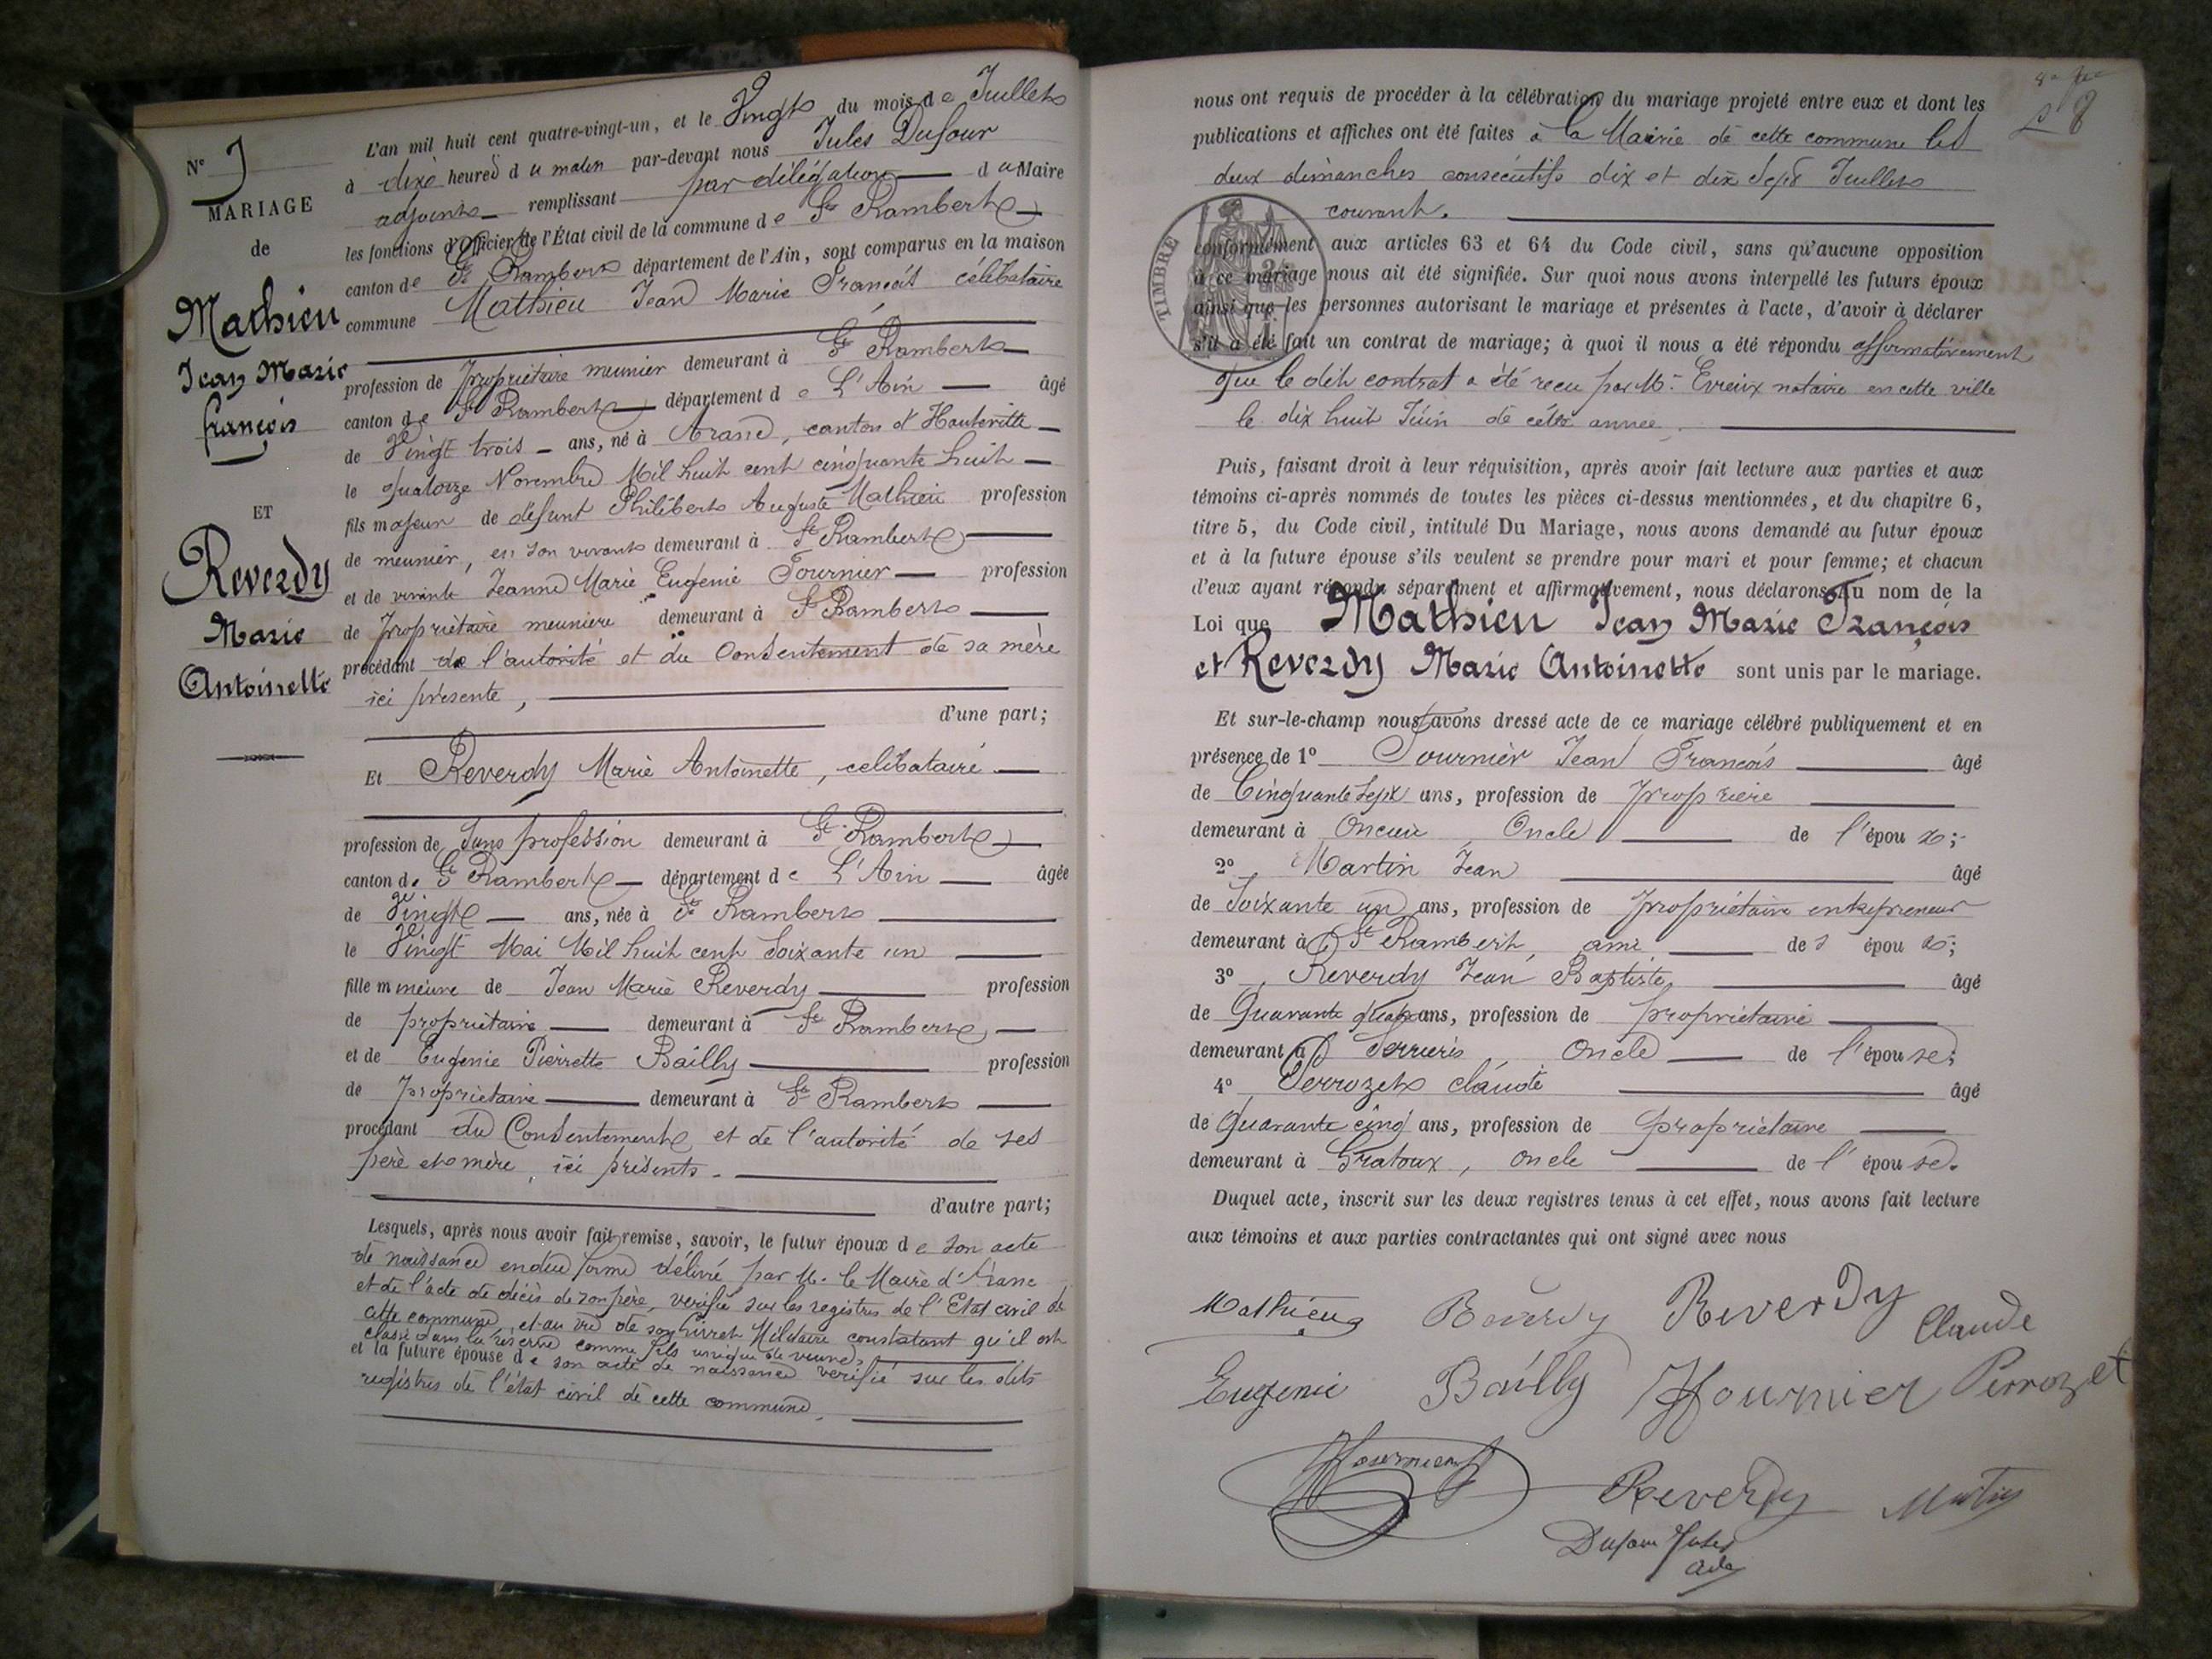 N° 7
MARIAGE
de
Mathieu
Jean Marie
françois
ET
Reverdy
Marie
Antoinette
L'an mil huit cent quatre-vingt-un, et le Vingt du mois de Juillet
à dix heures du matin par-devant nous Jules Dufour
adjoint remplissant par délégation du Maire
les fonctions d'Officier de l'État civil de la commune de St Rambert
canton de St Rambert département de l'Ain, sont comparus en la maison
commune Mathieu Jean Marie François célibataire
profession de Propriétaire meunier demeurant à St Rambert
canton de St Rambert département de L'Ain âgé
de Vingt trois ans, né à Aranc, canton d'Hauteville
le quatorze Novembre Mil huit cent cinquante huit
fils majeur de défunt Philibert Auguste Mathieu profession
de meunier, en son vivant demeurant à St Rambert
et de vivante Jeanne Marie Eugenie Fournier profession
de propriétaire meunière demeurant à St Rambert
procédant de l'autorité et du Consentement de sa mère
ici présente,
d'une part;
Et Reverdy Marie Antoinette, celibataire
profession de Sans profession demeurant à St Rambert
canton de St Rambert département de L'Ain âgée
de Vingt ans, née à St Rambert
le Vingt Mai Mil huit cent Soixante un
fille mineure de Jean Marie Reverdy profession
de propriétaire demeurant à St Rambert
et de Eugenie Pierrette Bailly profession
de propriétaire demeurant à St Rambert
procédant du Consentement et de l'autorité de ses
père et mère ici présents.
d'autre part;
Lesquels, après nous avoir fait remise, savoir, le futur époux de son acte
de naissance en due forme délivré par M. le Maire d'Aranc
et de l'acte de décès de son père, verifié sur les registres de l'Etat civil de
cette commune, et au vu de son livret Militaire constatant qu'il est
classé dans la réserve comme fils unique de veuve,
et la future épouse de son acte de naissance verifié sur les dits
registres de l'état civil de cette commune,
8
nous ont requis de procéder à la célébration du mariage projeté entre eux et dont les
publications et affiches ont été faites à la Mairie de cette commune les
deux dimanches consécutifs dix et dix Sept Juillet
courant.
TIMBRE
conformément aux articles 63 et 64 du Code civil, sans qu'aucune opposition
à ce mariage nous ait été signifiée. Sur quoi nous avons interpellé les futurs époux
ainsi que les personnes autorisant le mariage et présentes à l'acte, d'avoir à déclarer
s'il a été fait un contrat de mariage; à quoi il nous a été répondu affirmativement
que le dit contrat a été reçu par Me Evreix notaire en cette ville
le dix huit Juin de cette année.
Puis, faisant droit à leur réquisition, après avoir fait lecture aux parties et aux
témoins ci-après nommés de toutes les pièces ci-dessus mentionnées, et du chapitre 6,
titre 5, du Code civil, intitulé Du Mariage, nous avons demandé au futur époux
et à la future épouse s'ils veulent se prendre pour mari et pour femme; et chacun
d'eux ayant répondu séparément et affirmativement, nous déclarons au nom de la
Loi que Mathieu Jean Marie François
et Reverdy Marie Antoinette sont unis par le mariage.
Et sur-le-champ nous avons dressé acte de ce mariage célébré publiquement et en
présence de 1° Fournier Jean François âgé
de Cinquante Sept ans, profession de
demeurant à Oncieu Oncle de l'époux;
2° Martin Jean âgé
de Soixante un ans, profession de propriétaire entrepreneur
demeurant à St Rambert, ami des époux;
3° Reverdy Jean Baptiste âgé
de Quarante quatre ans, profession de propriétaire
demeurant à Serrières Oncle de l'épouse;
4° Perrozet Claude âgé
de Quarante cinq ans, profession de propriétaire
demeurant à Gratoux, oncle de l'épouse.
Duquel acte, inscrit sur les deux registres tenus à cet effet, nous avons fait lecture
aux témoins et aux parties contractantes qui ont signé avec nous
Mathieu Reverdy Reverdy Claude
Eugenie Bailly Fournier Perrozet
Fournier Reverdy Martin
Dufour Jules